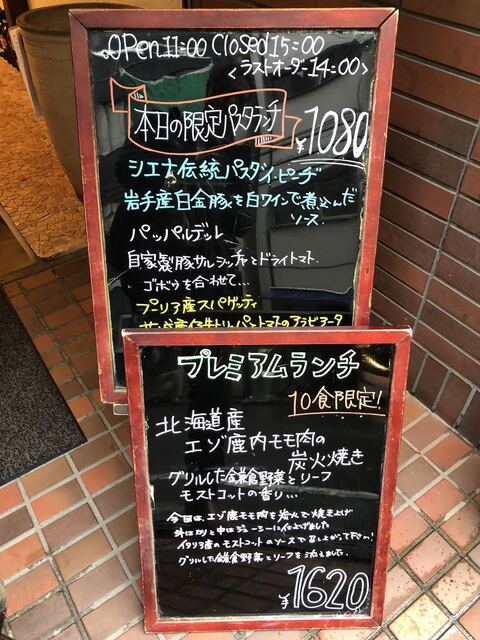 OPen 11:00 Closed 15:00
<ラストオーダー14:00>
本日の限定パスタランチ
¥1080
シエナ伝統パスタ〝ピーチ〟
岩手産白金豚を白ワインで煮込んだ
ソース.
パッパルデッレ
自家製豚サルシッチャとドライトマト.
ゴボウを合わせて…
プーリア産スパゲッティ
トマトのアラビアータ
プレミアムランチ
10食限定!
北海道産
エゾ鹿内モモ肉の
炭火焼き
グリルした鎌倉野菜とリーフ
モストコットの香り…
今日は、エゾ鹿モモ肉を炭火で焼き上げ
外はカリと中はジューシーに仕上げました
イタリア産のモストコットのソースで召し上がって下さい!
グリルした鎌倉野菜とリーフを添えました.
¥1620